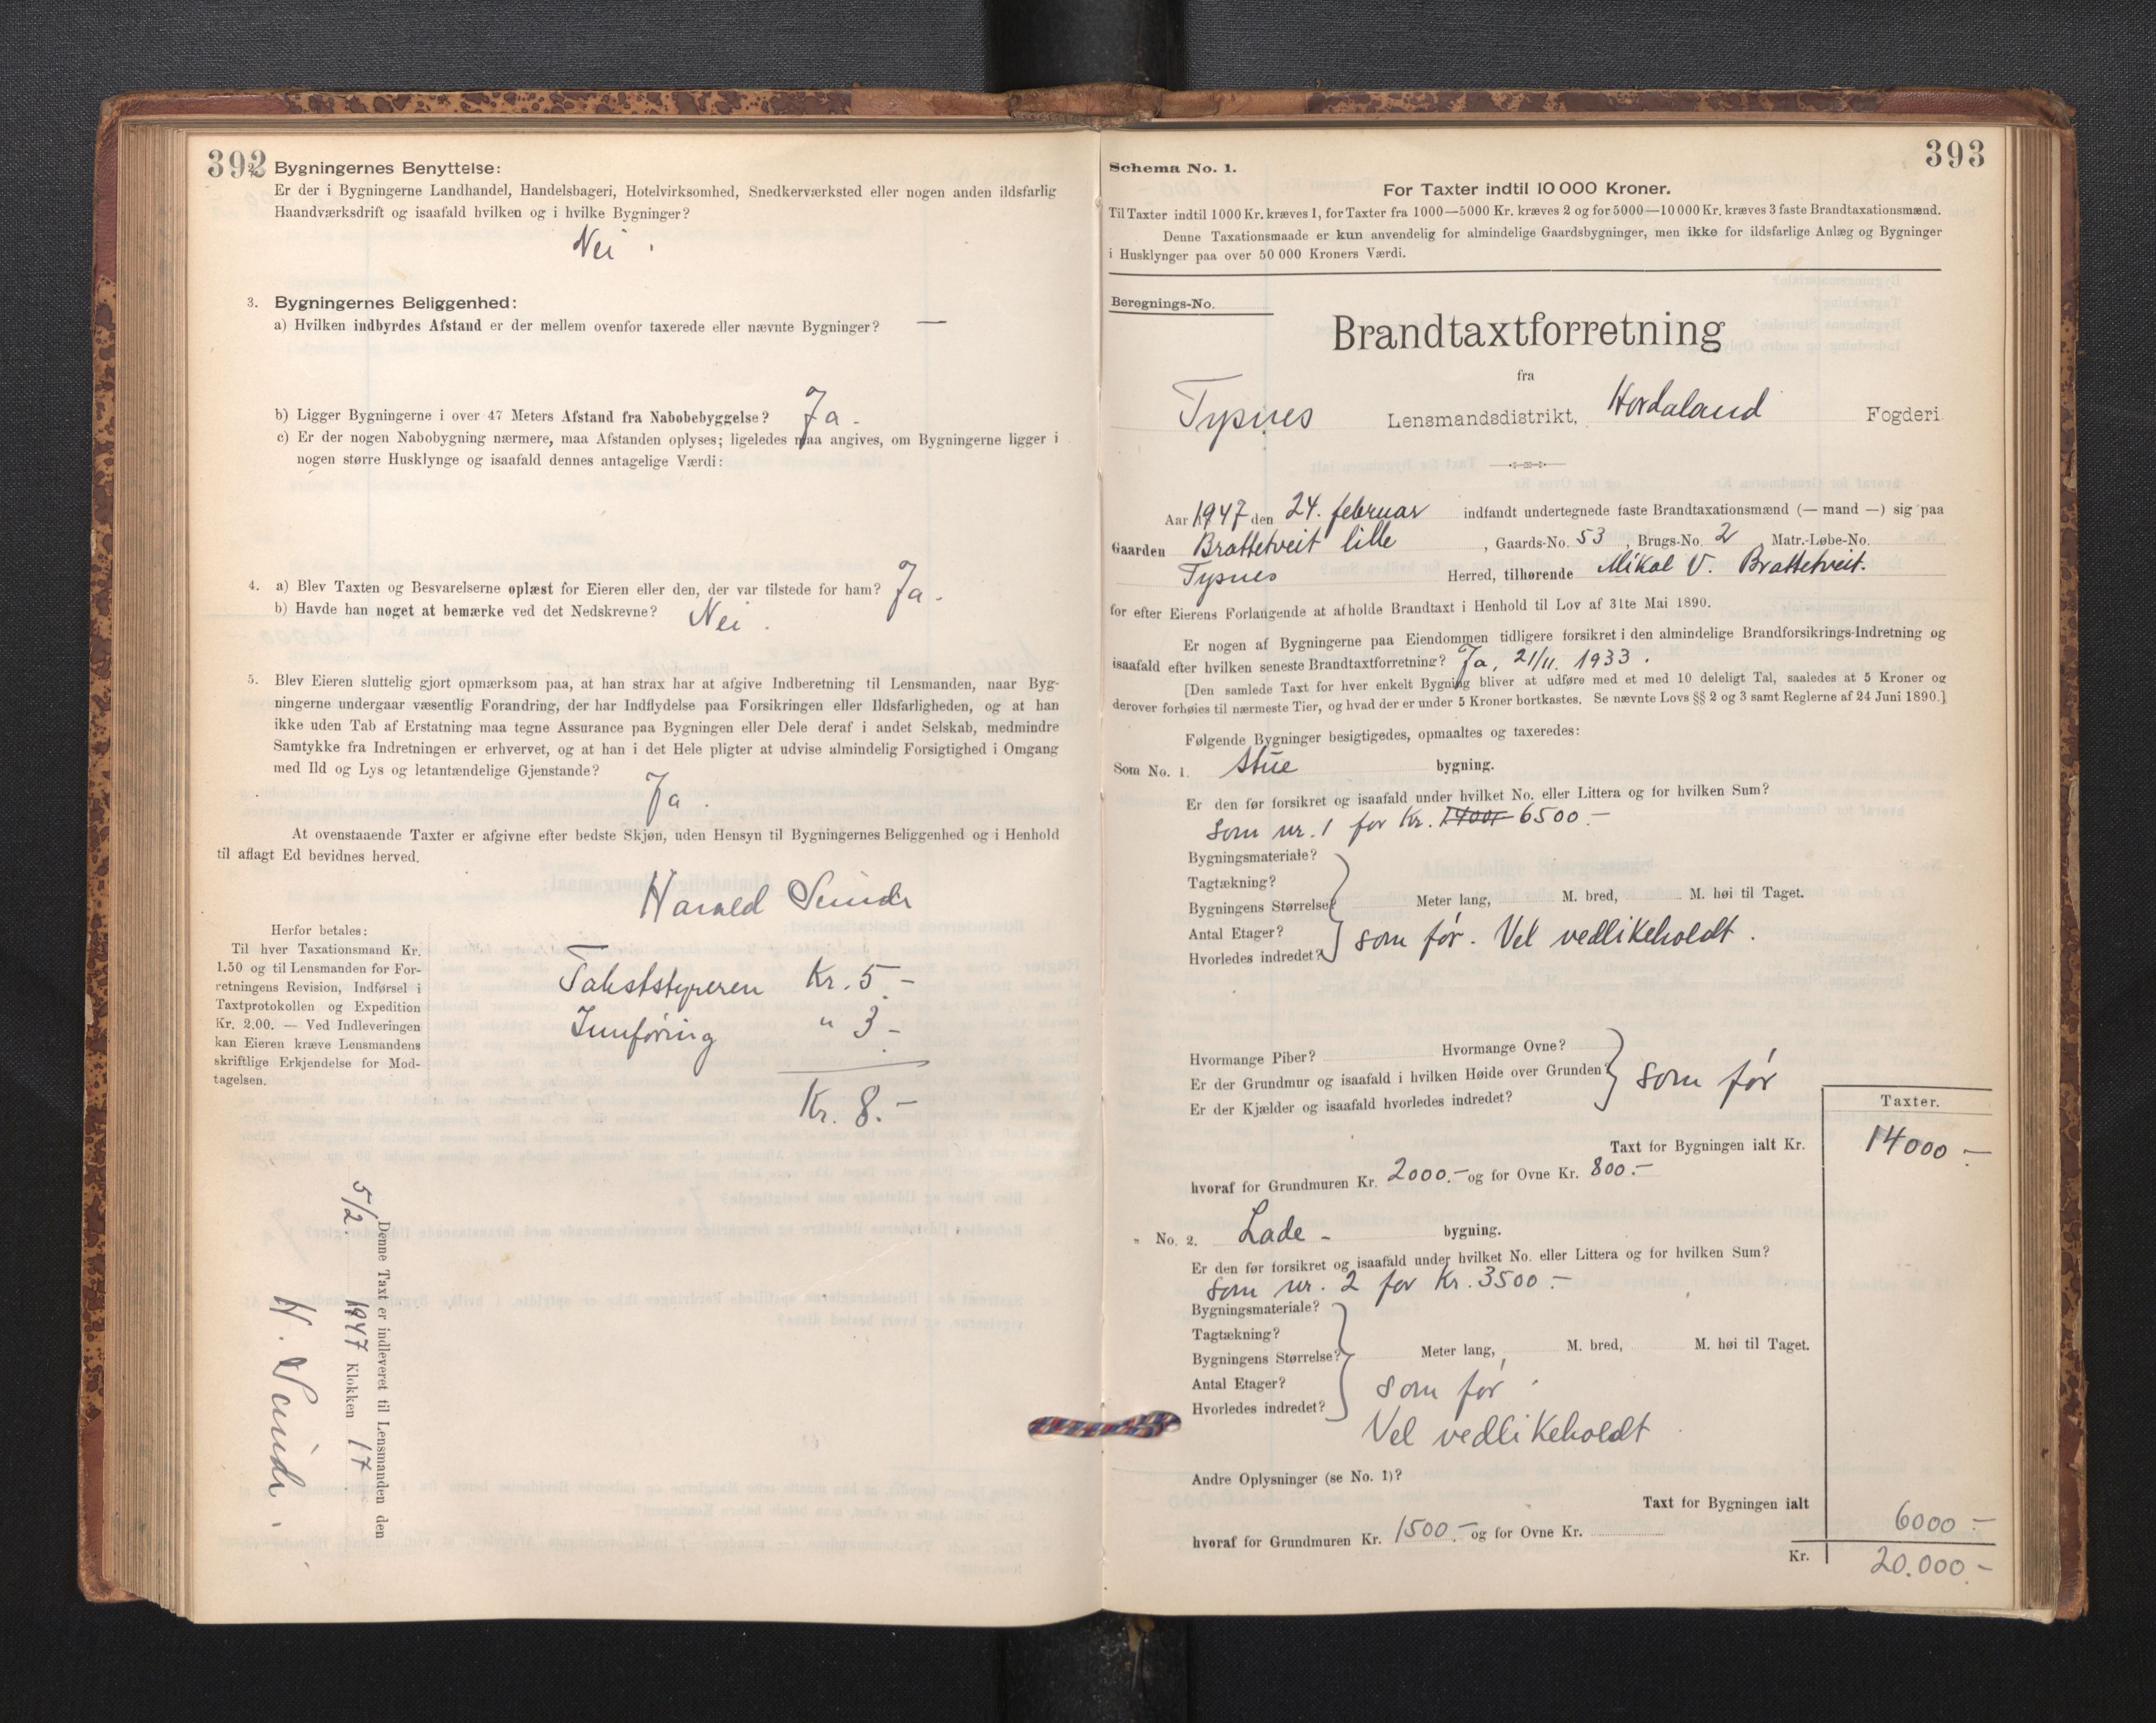 392
2. Bygningernes Benyttelse:
Er der i Bygningerne Landhandel, Handelsbageri, Hotelvirksomhed, Snedkerværksted eller nogen anden ildsfarlig
Haandværksdrift og isaafald hvilken og i hvilke Bygninger?
Nei.
3. Bygningernes Beliggenhed:
a) Hvilken indbyrdes Afstand er der mellem ovenfor taxerede eller nævnte Bygninger? —
b) Ligger Bygningerne i over 47 Meters Afstand fra Nabobebyggelse? Ja.
c) Er der nogen Nabobygning nærmere, maa Afstanden oplyses; ligeledes maa angives, om Bygningerne ligger i
nogen større Husklynge og isaafald dennes antagelige Værdi:
4. a) Blev Taxten og Besvarelserne oplæst for Eieren eller den, der var tilstede for ham? Ja.
b) Havde han noget at bemærke ved det Nedskrevne? Nei.
5. Blev Eieren sluttelig gjort opmærksom paa, at han strax har at afgive Indberetning til Lensmanden, naar Byg-
ningerne undergaar væsentlig Forandring, der har Indflydelse paa Forsikringen eller Ildsfarligheden, og at han
ikke uden Tab af Erstatning maa tegne Assurance paa Bygningen eller Dele deraf i andet Selskab, medmindre
Samtykke fra Indretningen er erhvervet, og at han i det Hele pligter at udvise almindelig Forsigtighed i Omgang
med Ild og Lys og letantændelige Gjenstande?
Ja.
At ovenstaaende Taxter er afgivne efter bedste Skjøn, uden Hensyn til Bygningernes Beliggenhed og i Henhold
til aflagt Ed bevidnes herved.
Harald
Herfor betales:
Til hver Taxationsmand Kr.
1.50 og til Lensmanden for For-
retningens Revision, Indførsel i
Taxtprotokollen og Expedition
Kr. 2.00. — Ved Indleveringen
kan Eieren kræve Lensmandens
skriftlige Erkjendelse for Mod-
tagelsen.
Takststyreren Kr. 5.-
Innføring " 3.-
Kr. 8.-
Denne Taxt er indleveret til Lensmanden den
5/2 1947 Klokken 17
H.
393
Schema No. 1.
For Taxter indtil 10 000 Kroner.
Til Taxter indtil 1000 Kr. kræves 1, for Taxter fra 1000—5000 Kr. kræves 2 og for 5000—10 000 Kr. kræves 3 faste Brandtaxationsmænd.
Denne Taxationsmaade er kun anvendelig for almindelige Gaardsbygninger, men ikke for ildsfarlige Anlæg og Bygninger
i Husklynger paa over 50 000 Kroners Værdi.
Beregnings-No.
Brandtaxtforretning
fra
Tysnes Lensmandsdistrikt, Hordaland Fogderi
Aar 1947 den 24. februar indfandt undertegnede faste Brandtaxationsmænd (— mand —) sig paa
Gaarden Brattetveit lille, Gaards-No. 53, Brugs-No. 2 Matr.-Løbe-No.
Tysnes Herred, tilhørende Mikal V. Brattetveit.
for efter Eierens Forlangende at afholde Brandtaxt i Henhold til Lov af 31te Mai 1890.
Er nogen af Bygningerne paa Eiendommen tidligere forsikret i den almindelige Brandforsikrings-Indretning og
isaafald efter hvilken seneste Brandtaxtforretning? Ja, 21/11. 1933.
[Den samlede Taxt for hver enkelt Bygning bliver at udføre med et med 10 deleligt Tal, saaledes at 5 Kroner og
derover forhøies til nærmeste Tier, og hvad der er under 5 Kroner bortkastes. Se nævnte Lovs §§ 2 og 3 samt Reglerne af 24 Juni 1890.]
Følgende Bygninger besigtigedes, opmaaltes og taxeredes:
Som No. 1. Stue bygning.
Er den før forsikret og isaafald under hvilket No. eller Littera og for hvilken Sum?
som nr. 1 for Kr. 6500.-
Bygningsmateriale?
Tagtækning?
Bygningens Størrelse? Meter lang, M. bred, M. høi til Taget.
Antal Etager?
Hvorledes indredet? som før. Vel vedlikeholdt.
Hvormange Piber? Hvormange Ovne?
Er der Grundmur og isaafald i hvilken Høide over Grunden? som før
Er der Kjælder og isaafald hvorledes indredet?
Taxter.
Taxt for Bygningen ialt Kr. 14000.-
hvoraf for Grundmuren Kr. 2000.- og for Ovne Kr. 800.-
" No. 2. Lade- bygning.
Er den før forsikret og isaafald under hvilket No. eller Littera og for hvilken Sum?
som nr. 2 for Kr. 3500.-
Bygningsmateriale?
Tagtækning?
Bygningens Størrelse? Meter lang, M. bred, M. høi til Taget.
Antal Etager? som før.
Hvorledes indredet? Vel vedlikeholdt
Andre Oplysninger (se No. 1)?
Taxt for Bygningen ialt 6000.-
hvoraf for Grundmuren Kr. 1500.- og for Ovne Kr.
Kr. 20.000.-